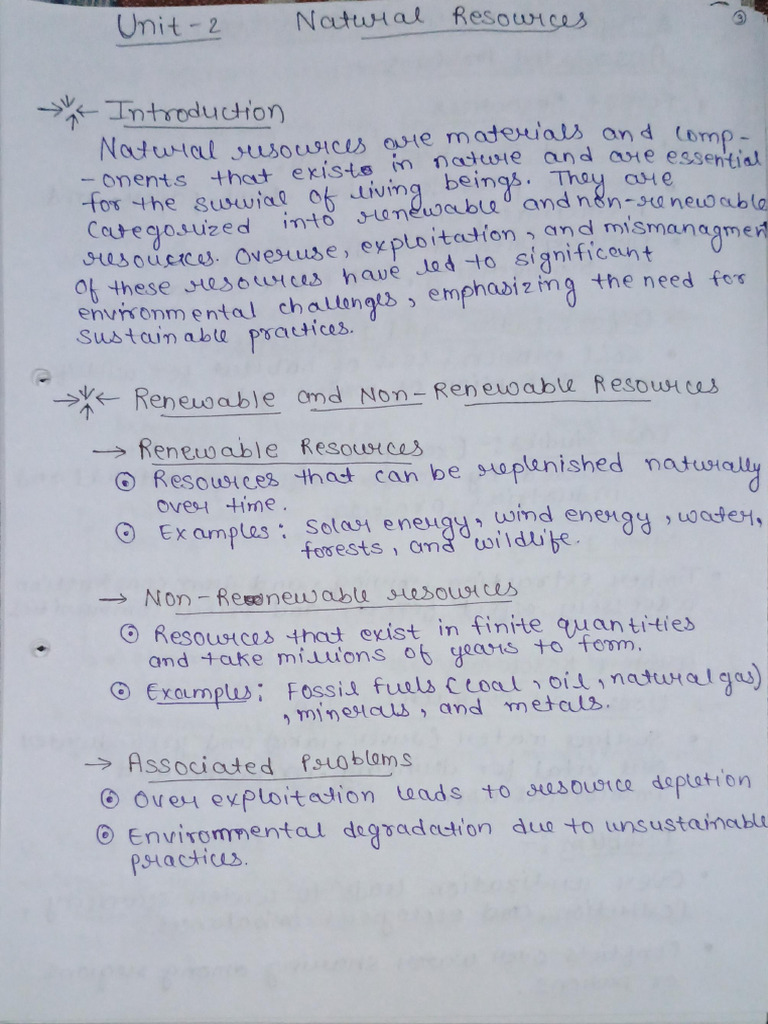 Unit-2 Natural Resources
3
Introduction
Natural resources are materials and comp-
-onents that exists in nature and are essential
for the survial of living beings. They are
categorized into renewable and non-renewable
resources. Overuse, exploitation, and mismanagmen
of these resources have led to significant
environmental challenges, emphasizing the need for
sustainable practices.
Renewable and Non-Renewable Resources
→ Renewable Resources
⊙ Resources that can be replenished naturally
over time.
⊙ Examples: Solar energy, wind energy, water,
forests, and wildlife.
→ Non-Renewable resources
⊙ Resources that exist in finite quantities
and take millions of years to form.
⊙ Examples: Fossil fuels (coal, oil, natural gas)
, minerals, and metals.
→ Associated Problems
⊙ Over exploitation leads to resource depletion
⊙ Environmental degradation due to unsustainable
practices.